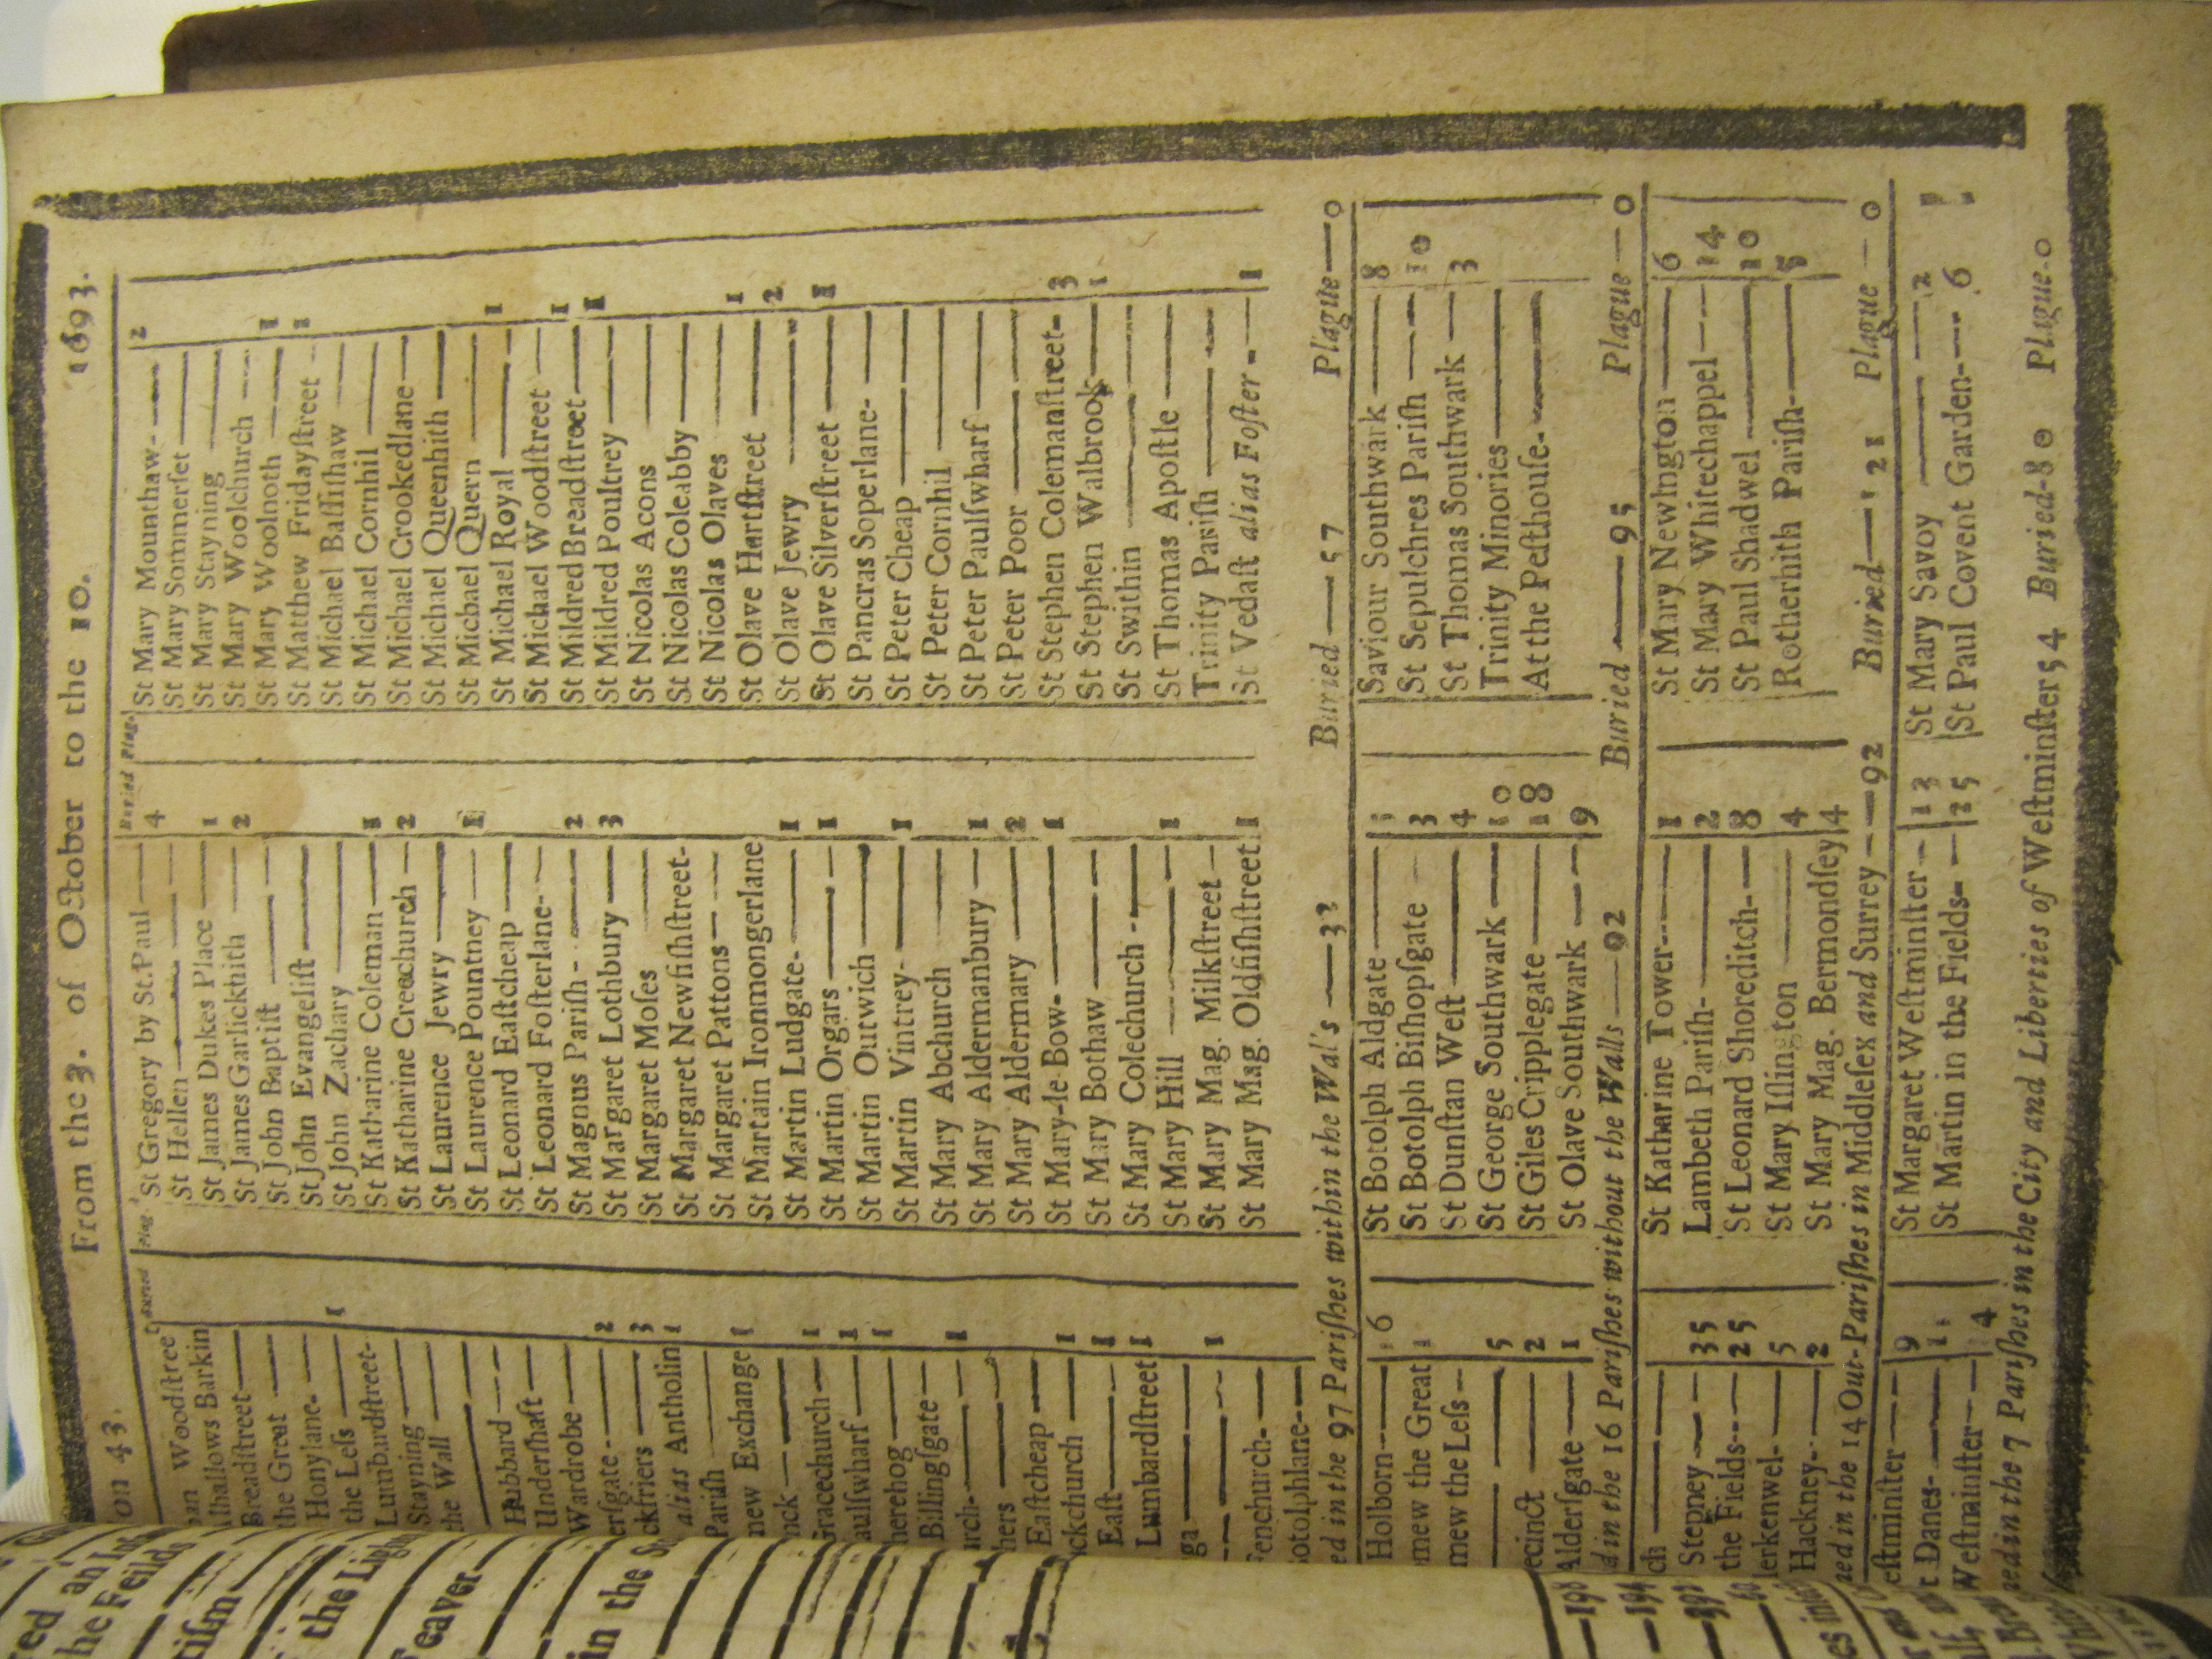 on 43. From the 3. of October to the 10. 1693.
Buried Plag.
Woodstree
lhallows Barkin
Breadstreet
the Great
Honylane-
the Less 1
Lumbardstreet-
Stayning
the Wall
Hubbard
Undershaft
Wardrobe
ersgate- 2
ckfriers 3
alias Antholin 1
Parish
new Exchange 1
nck
Gracechurch 1
aulswharf 1
herehog 1
Billingsgate
urch- 1
hers
Eastcheap
ckchurch 1
East 1
Lumbardstreet 1
ga 1
Fenchurch-
Botolphlane-
Buried Plag.
St Gregory by St. Paul 4
St Hellen
St James Dukes Place 1
St James Garlickhith 2
St John Baptist
St John Evangelist
St John Zachary
St Katharine Coleman 1
St Katharine Creechurch 2
St Laurence Jewry
St Laurence Pountney 1
St Leonard Eastcheap
St Leonard Fosterlane-
St Magnus Parish- 2
St Margaret Lothbury 3
St Margaret Moses
St Margaret Newfishstreet-
St Margaret Pattons
St Martain Ironmongerlane
St Martin Ludgate- 1
St Martin Orgars 1
St Martin Outwich
St Martin Vintrey- 1
St Mary Abchurch
St Mary Aldermanbury 1
St Mary Aldermary 2
St Mary-le-Bow- 1
St Mary Bothaw
St Mary Colechurch
St Mary Hill 1
St Mary Mag. Milkstreet
St Mary Mag. Oldfishstreet 1
St Mary Mounthaw- 2
St Mary Sommerset
St Mary Stayning
St Mary Woolchurch
St Mary Woolnoth 1
St Matthew Fridaystreet 1
St Michael Bassishaw
St Michael Cornhil
St Michael Crookedlane
St Michael Queenhith
St Michael Quern
St Michael Royal 1
St Michael Woodstreet
St Mildred Breadstreet 1
St Mildred Poultrey 1
St Nicolas Acons
St Nicolas Coleabby
St Nicolas Olaves
St Olave Hartstreet 1
St Olave Jewry 2
St Olave Silverstreet 1
St Pancras Soperlane-
St Peter Cheap
St Peter Cornhil
St Peter Paulswharf
St Peter Poor
St Stephen Colemanstreet- 3
St Stephen Walbrook 1
St Swithin
St Thomas Apostle
Trinity Parish
St Vedast alias Foster 1
ed in the 97 Parishes within the Wal's Buried 57 Plague 0
Holborn 6
mew the Great
mew the Less
5
ecinct 2
Aldersgate 1
St Botolph Aldgate
St Botolph Bishopsgate 3
St Dunstan West 4
St George Southwark 10
St Giles Cripplegate 18
St Olave Southwark 9
Saviour Southwark 8
St Sepulchres Parish 10
St Thomas Southwark 3
Trinity Minories
At the Pesthouse-
d in the 16 Parishes without the Walls 92 Buried 95 Plague 0
ch
Stepney 35
the Fields 25
lerkenwel- 5
Hackney- 2
St Katharine Tower 1
Lambeth Parish- 2
St Leonard Shoreditch- 8
St Mary Islington 4
St Mary Mag. Bermondsey 4
St Mary Newington 6
St Mary Whitechappel 14
St Paul Shadwel 10
Rotherhith Parish 5
ned in the 14 Out-Parishes in Middlesex and Surrey 92 Buried 121 Plague 0
estminster 9
t Danes-
Westminster 4
St Margaret Westminster 13
St Martin in the Fields- 25
St Mary Savoy 2
St Paul Covent Garden- 6
ned in the 7 Parishes in the City and Liberties of Westminster 54 Buried-80 Plague-0
the Feild
the Ligh
Feaver
in the S
198
194